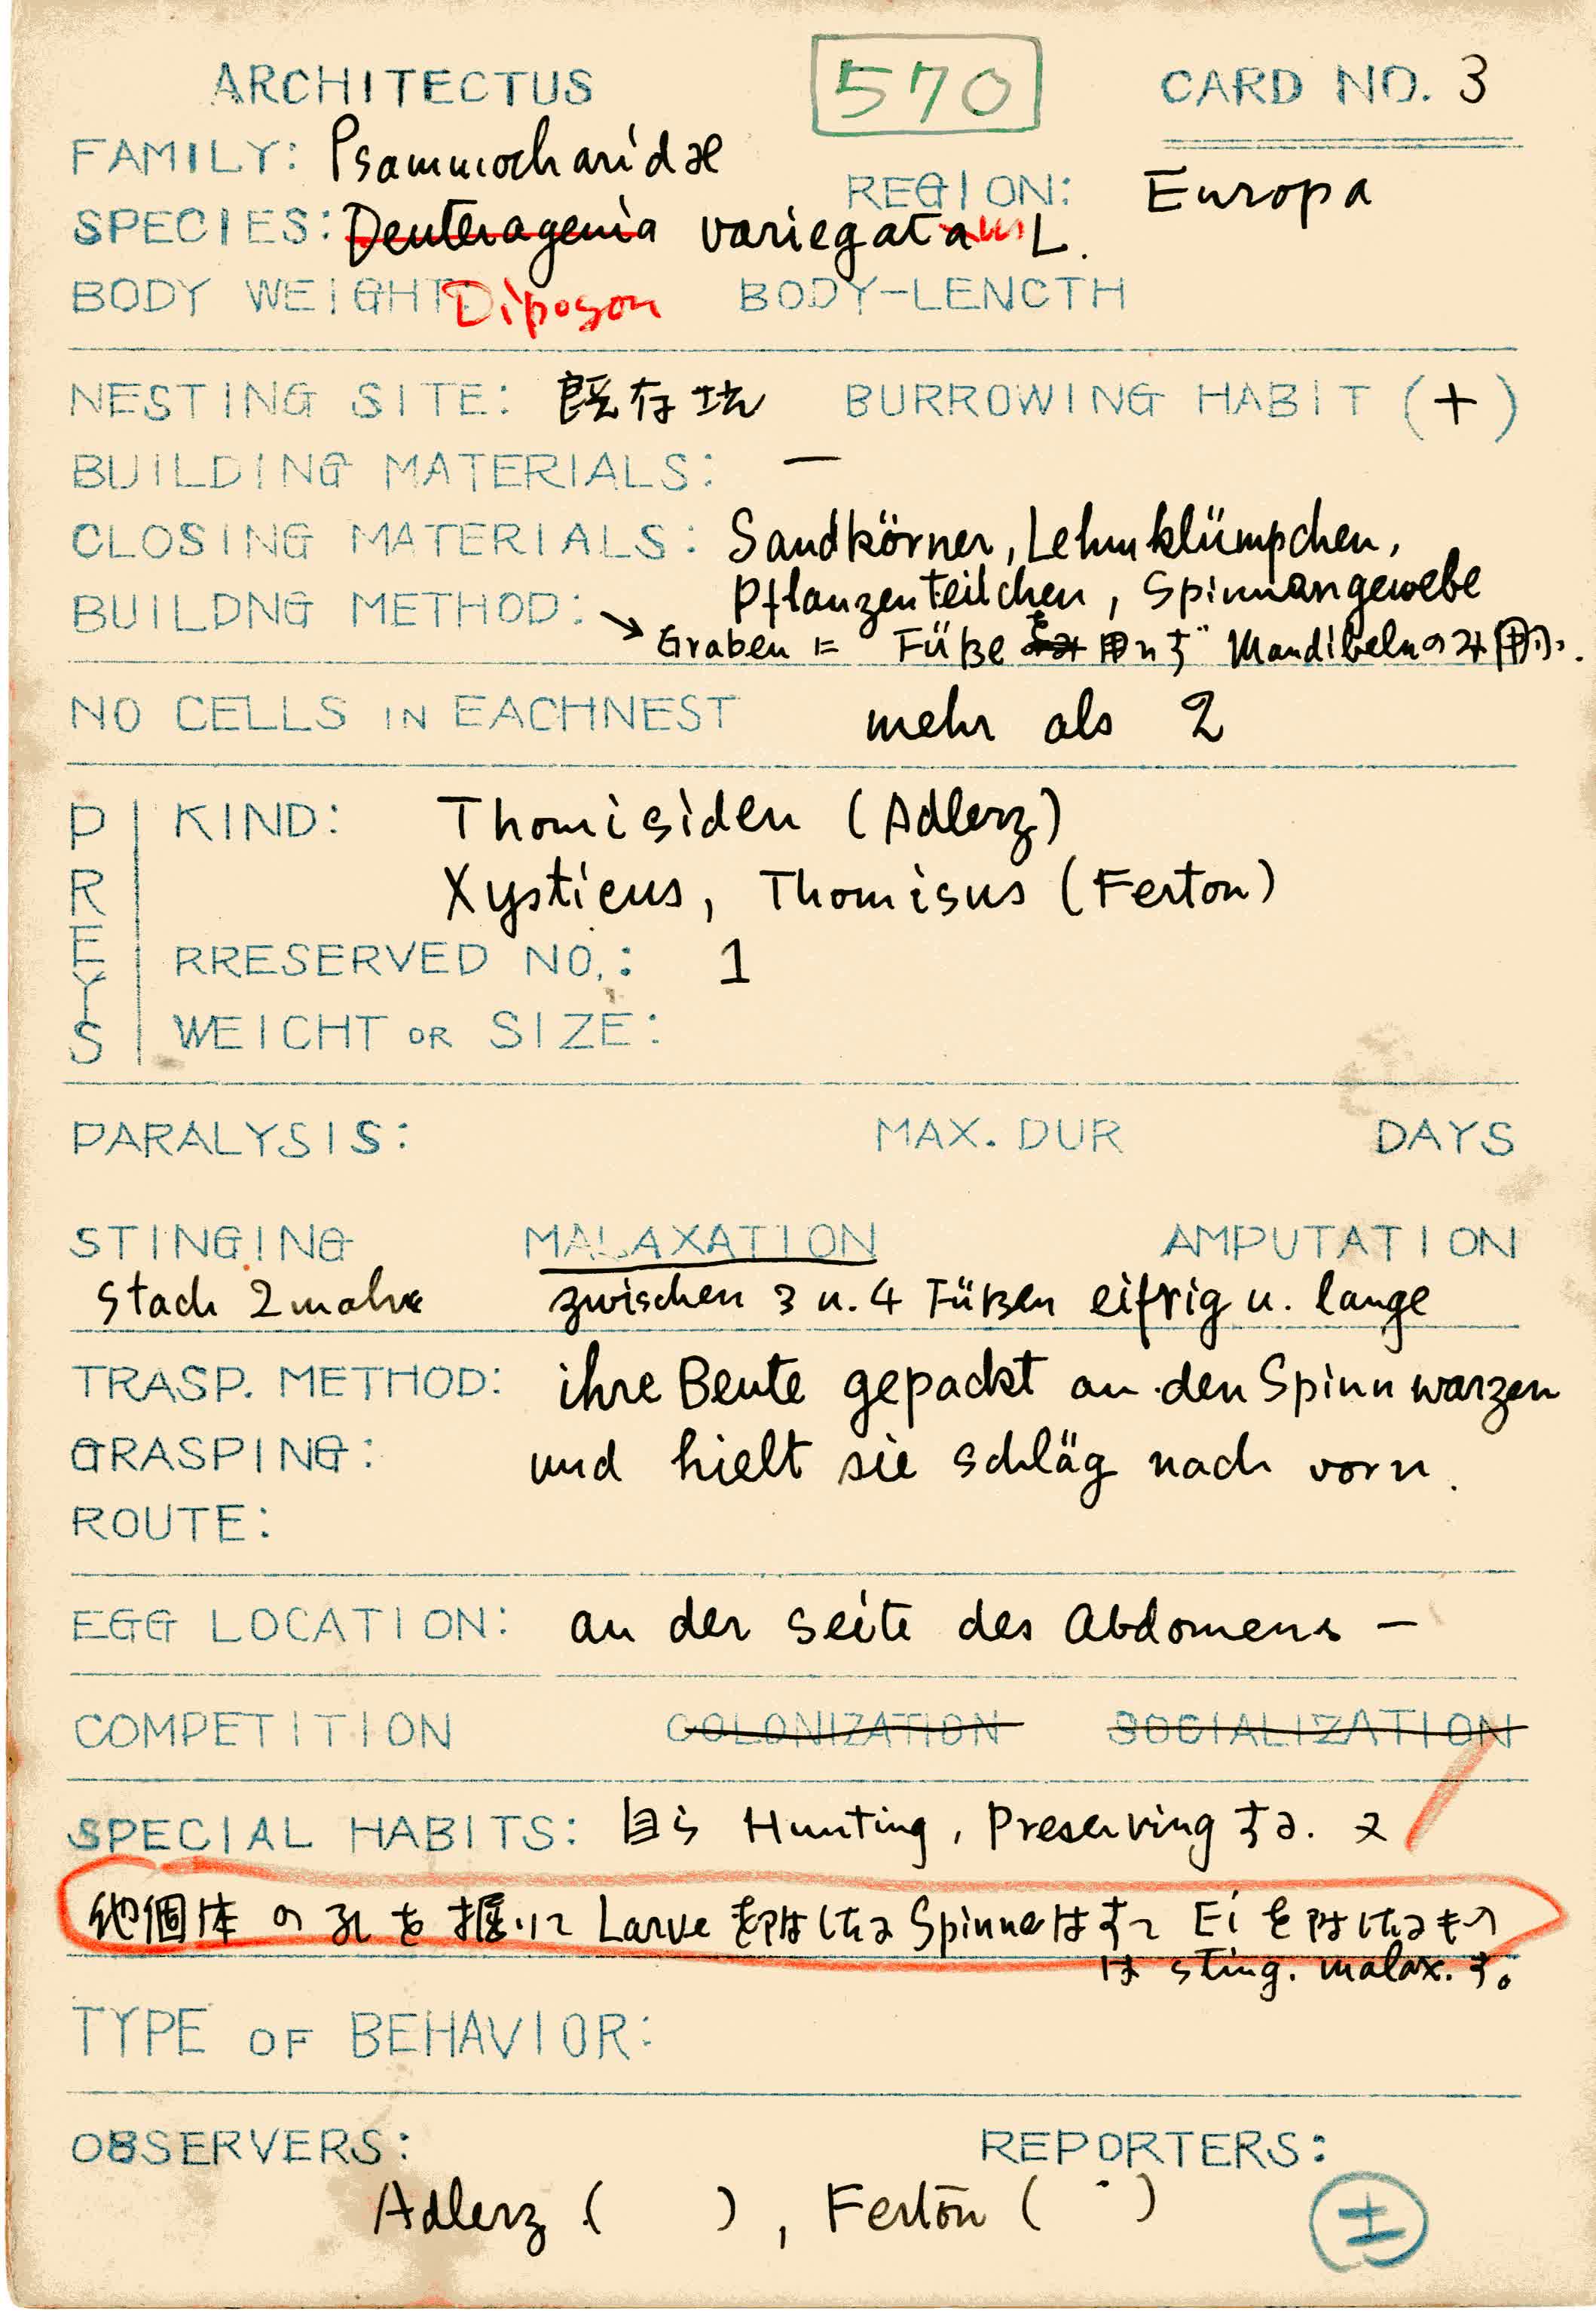 ARCHITECTUS 570 CARD NO. 3
FAMILY: Psammocharidæ
REGION: Europa
SPECIES: Deuteragenia variegata um L.
BODY WEIGHT: Dipogon BODY-LENCTH
NESTING SITE: 既存坑 BURROWING HABIT (+)
BUILDING MATERIALS: —
CLOSING MATERIALS: Sandkörner, Lehmklümpchen,
Pflanzenteilchen, Spinnangewebe
BUILDNG METHOD: → Graben ニ Füße 用ヒず Mandibelnのみ用フ.
NO CELLS IN EACHNEST mehr als 2
PREYS
KIND: Thomisiden (Adlerz)
Xysticus, Thomisus (Ferton)
RRESERVED NO.: 1
WEICHT OR SIZE:
PARALYSIS: MAX. DUR DAYS
STINGING MALAXATION AMPUTATION
Stach 2 male zwischen 3 u. 4 Füßen eifrig u. lange
TRASP. METHOD: ihre Beute gepackt an den Spinnwarzen
GRASPING: und hielt sie schläg nach vorn.
ROUTE:
EGG LOCATION: an der Seite des Abdomens —
COMPETITION COLONIZATION SOCIALIZATION
SPECIAL HABITS: 自ら Hunting, Preserving する. 又
他個体の孔を掘りて Larve を附けたる Spinne はすて Ei を附けたるもの
は sting. malax. す。
TYPE OF BEHAVIOR:
OBSERVERS: REPORTERS:
Adlerz ( ), Ferton ( )
±